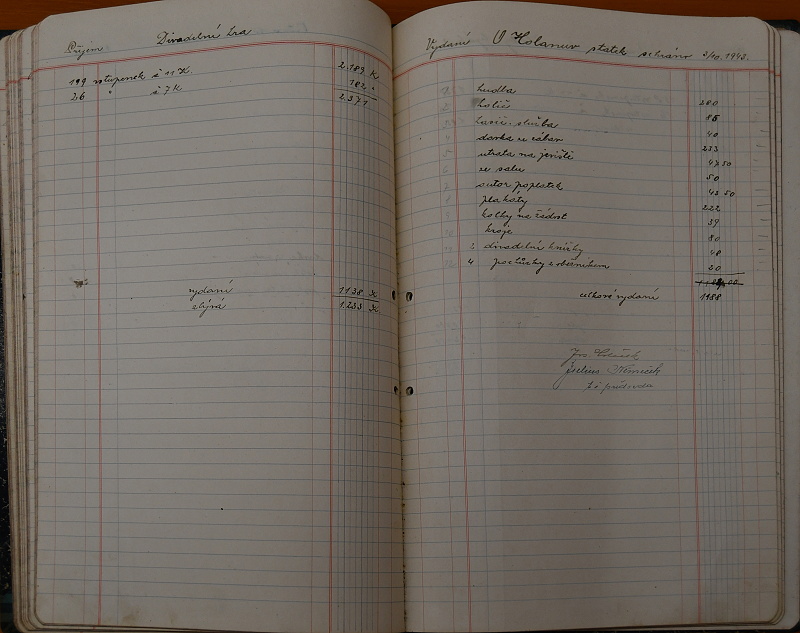 Příjem Divadelní hra
199 vstupenek à 11 K. 2.189 K
26 " à 7 K 182 "
2.371
vydání 1138 K
zbývá 1.233 K
Vydání O Holanův statek sehráno 3/10. 1943.
hudba 200
holič 85
hasič. služba 40
dávka ze zábav 233
útrata na jeviště 47 50
ze salu 50
autor poplatek 43 50
plakáty 222
kolky na žádost 39
kroje 80
2 divadelní knížky 48
4 pochůzky s oběžníkem 20
celkové vydání 1138
Jos.
Němeček